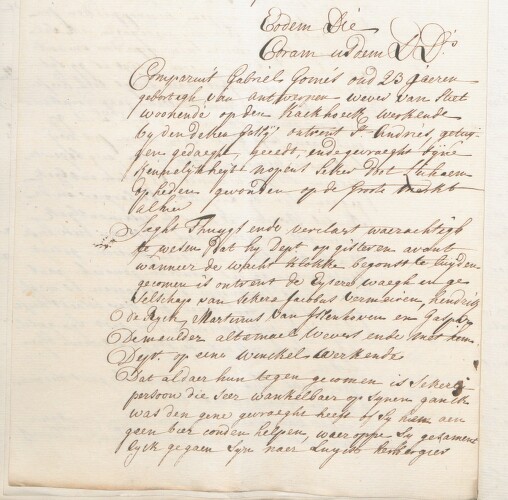 Eodem Die
Coram iisdem D D.
Comparuit Gabriel Gomes oud 23 jaeren
geboortigh van antwerpen wever van stiel
woonende op den Kaeckhoeck werckende
by den deken ontrent St Andries, getuy-
gen gedaeght, geeedt, ende gevraeght syne
kennelijckheyt nopens seker Doot Lichaem
op heden gevonden op de groote merckt
alhier
Seght Thuygt ende verclaert waerachtigh
te wesen Dat hy Dept op gisteren avont
wanneer de wacht klokke begonst te luyden
gecomen is ontrent de Eysere waegh in ge-
selschap van sekere Jacobus Vermeiren, hendrick
de Ryck, Martinus Van Ishoven en Gaspar
Demeulder altemael wevers ende met hem
Dept. op eene winckel werkende
Dat aldaer hun tegen gecomen is sekere
persoon die seer wankelbaer op synen ganck
was den gene gevraeght heeft of sy hem aen
geen bier conden helpen, waer oppe sy gesament-
lyck gegaen syn naer herbergies